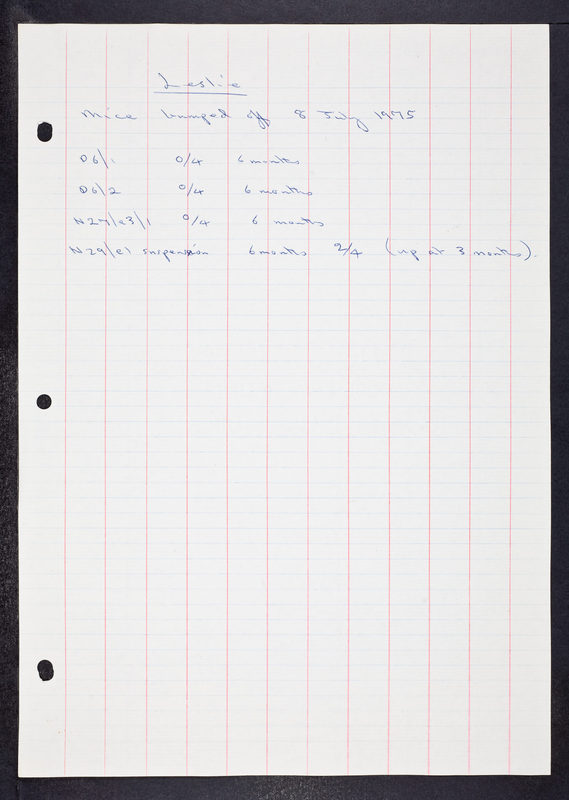 Leslie
Mice bumped off 8 July 1975
D6/1 0/4 6 months
D6/2 0/4 6 months
N27/e3/1 0/4 6 months
N29/e1 suspension 6 months 2/4 (up at 3 months).